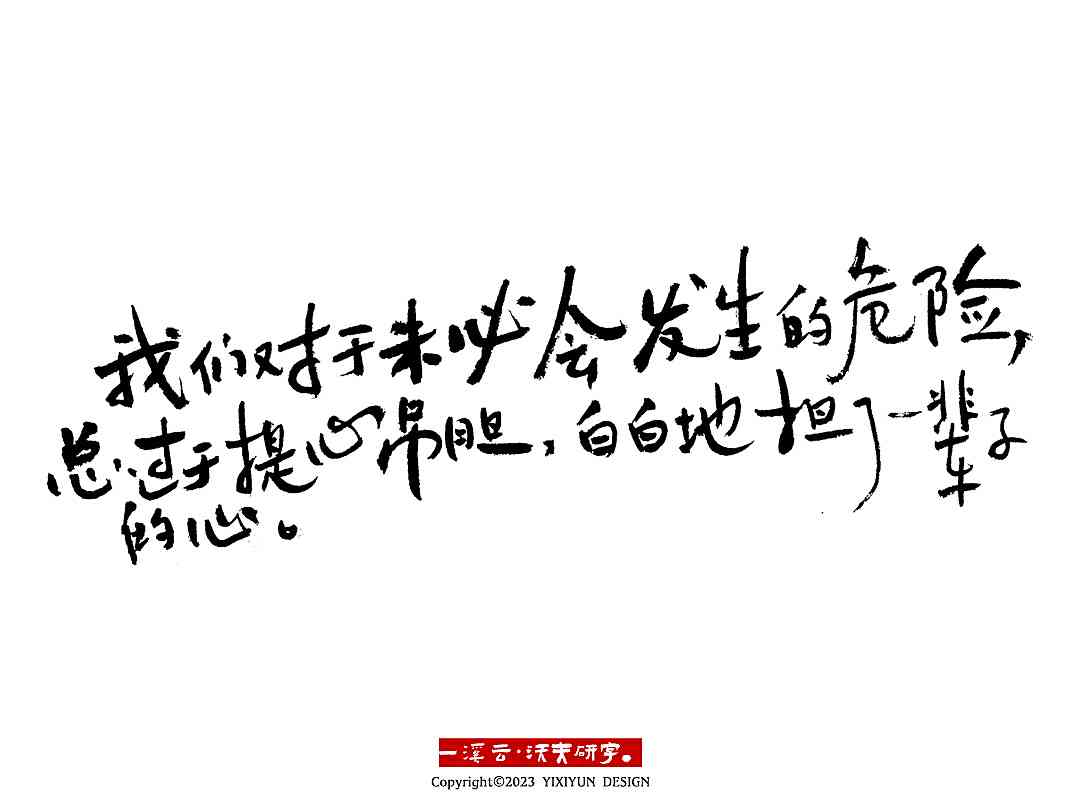 我们对于未必会发生的危险,
总过于提心吊胆,白白地担了一辈子
的心。
一溪云·沃夫研字。
Copyright©2023 YIXIYUN DESIGN